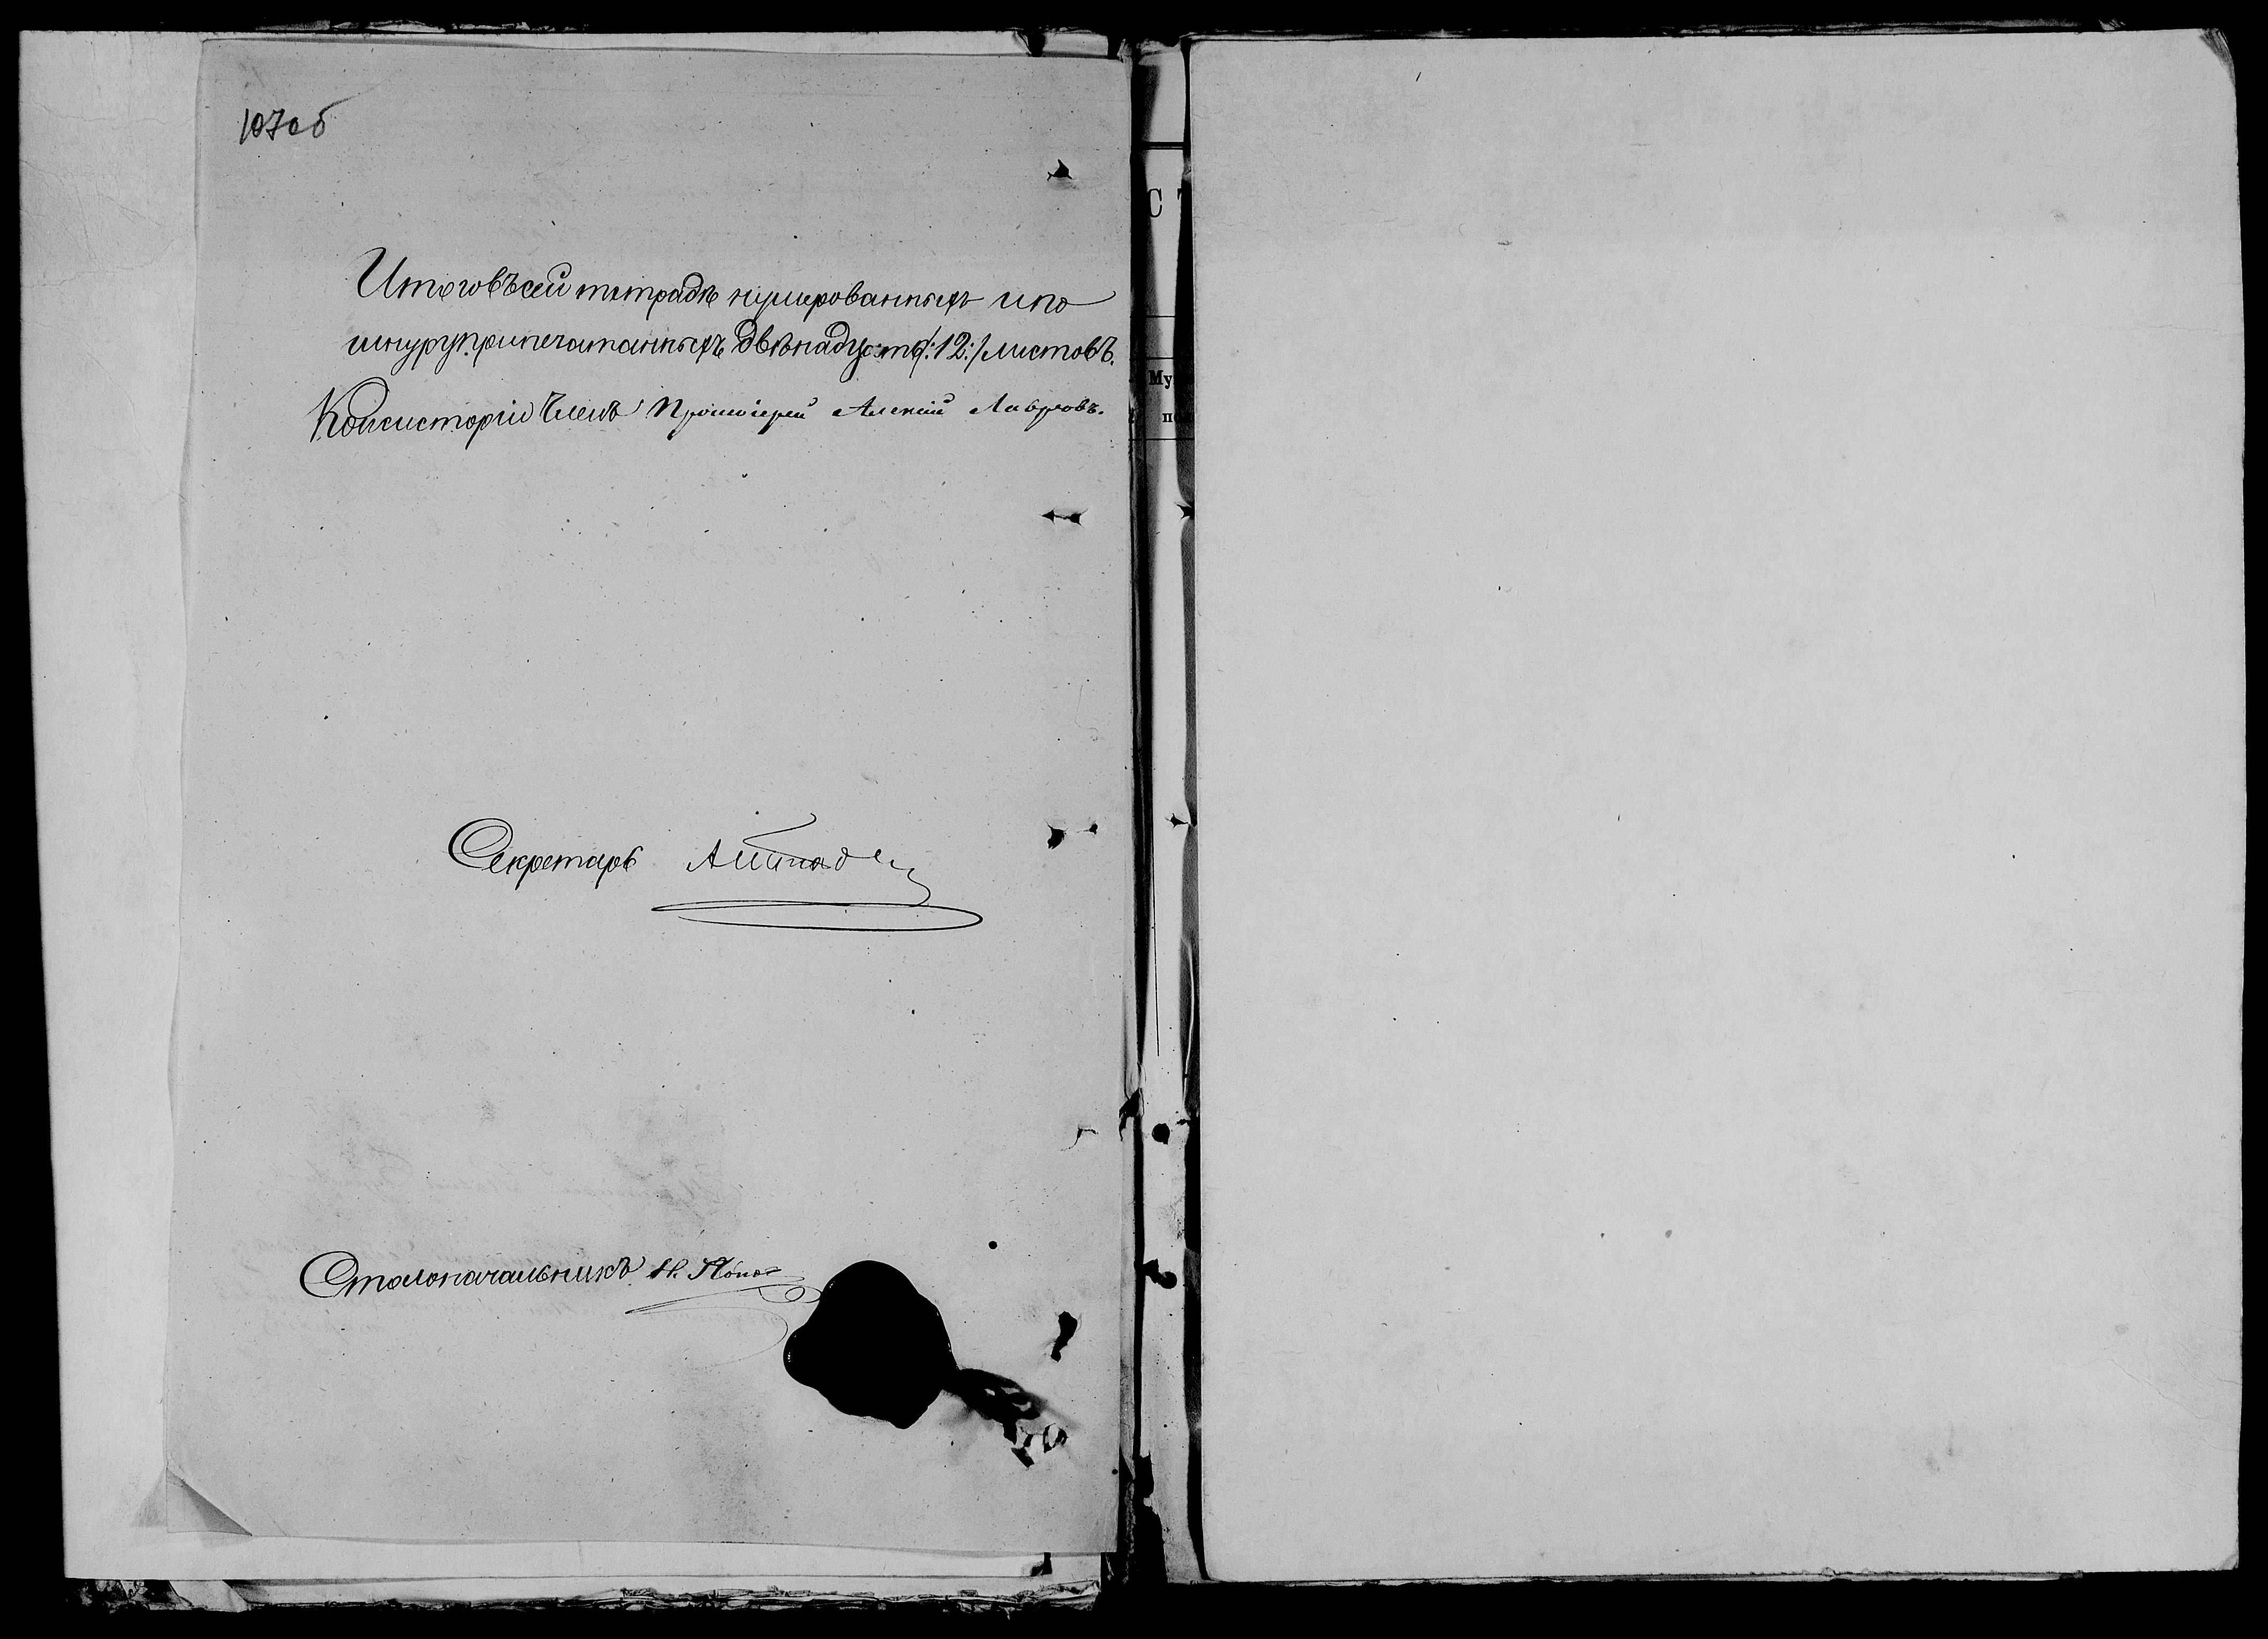 107об
Итого въ сей тетради нумерованныхъ и по
шнуру припечатанныхъ двѣнадцать /:12:/ листовъ.
Консисторіи Членъ Протоіерей Алексій Лавровъ.
Секретарь
Столоначальникъ Н. Попов
С
Му
по